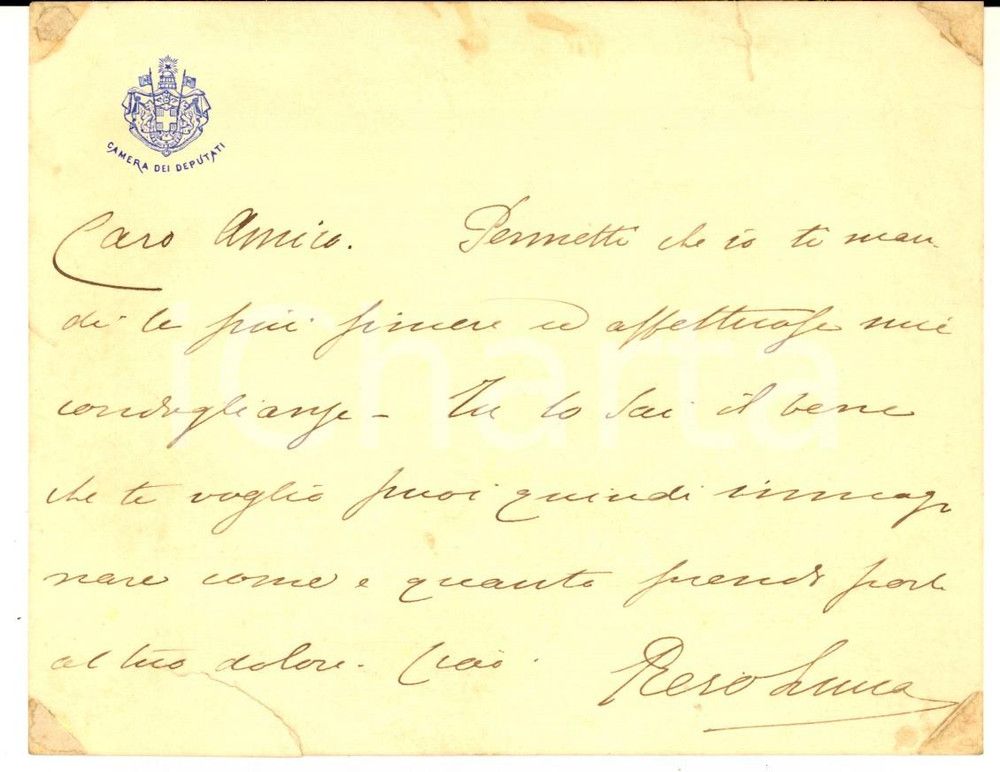 CAMERA DEI DEPUTATI
Caro Amico. Permetti che io ti man-
di le più sincere ed affettuose mie
condoglianze - Tu lo sai il bene
che ti voglio puoi quindi immagi
nare come e quanto prendo parte
al tuo dolore. Ciao.
iCharta